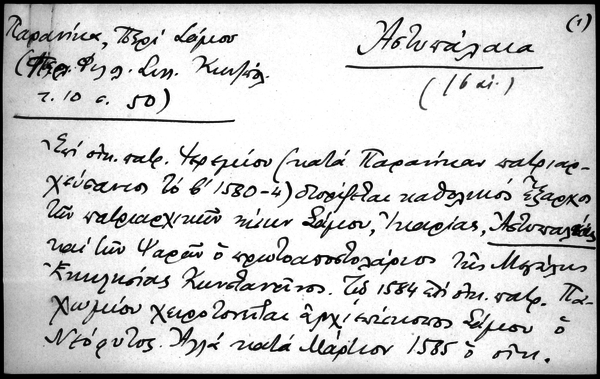 (1)
Παρανίκα, Περί Σάμου
(Περ. Φιλ. Συλ. Κων/πόλ.
τ. 10 σ. 50)
Ἀστυπάλαια
(16 αἰ.)
Ἐπί οἰκ. πατρ. Ἱερεμίου (κατά Παρανίκαν πατριαρ-
χεύσαντος τό β' 1580-4) διορίζεται καθολικός ἔξαρχος
τῶν πατριαρχικῶν νήσων Σάμου, Ἰκαρίας, Ἀστυπαλαίας
καί τῶν Ψαρῶν ὁ πρωτοαποστολάριος τῆς Μεγάλης
Ἐκκλησίας Κωνσταντῖνος. Τῷ 1584 ἐπί οἰκ. πατρ. Πα-
χωμίου χειροτονεῖται ἀρχιεπίσκοπος Σάμου ὁ
Νεόφυτος. Ἀλλά κατά Μάρτιον 1585 ὁ οἰκ.